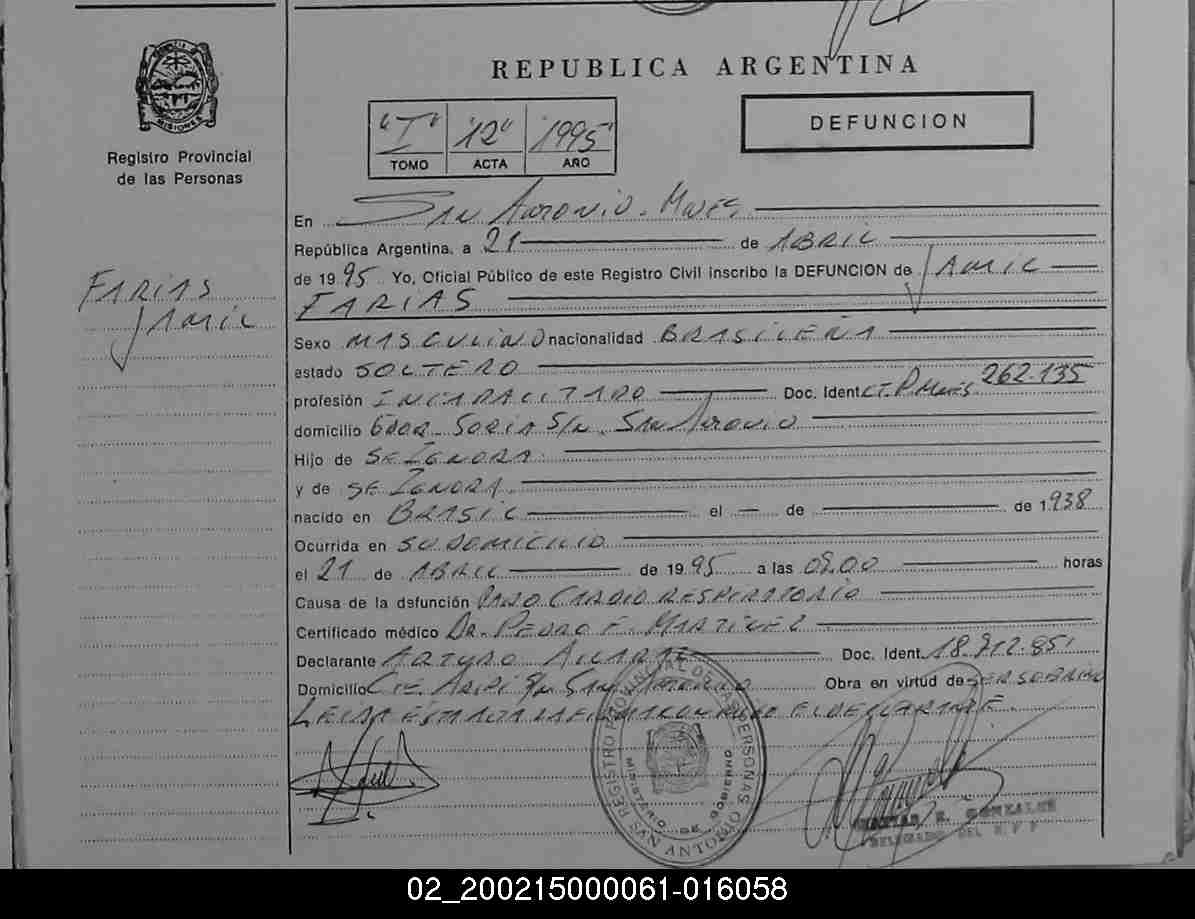 REPUBLICA ARGENTINA
MISIONES
Registro Provincial
de las Personas
"I" "12" "1995"
TOMO ACTA AÑO
DEFUNCION
FARIAS
JAMIL
En SAN ANTONIO. Mnes.
República Argentina, a 21 de ABRIL
de 1995 Yo, Oficial Público de este Registro Civil inscribo la DEFUNCION de JAMIL
FARIAS
Sexo MASCULINO nacionalidad BRASILEÑA
estado SOLTERO
profesión INCAPACITADO Doc. Ident. C.I.P.Mnes. 262.135
domicilio Gdor. SORIA S/N. SAN ANTONIO
Hijo de SE IGNORA.
y de SE IGNORA.
nacido en BRASIL el — de de 1.938
Ocurrida en SU DOMICILIO
el 21 de ABRIL de 1995 a las 08,00 horas
Causa de la defunción PARO CARDIO RESPIRATORIO
Certificado médico DR. PEDRO E. MARTINEZ
Declarante ARTURO Doc. Ident. 18.912.851
Domicilio S/N SAN ANTONIO Obra en virtud de SER SOBRINO
LEIDA ESTA ACTA LA FIRMA CON MIGO EL DECLARANTE.
REGISTRO PROVINCIAL DE LAS PERSONAS
MINISTERIO DE GOBIERNO
SAN ANTONIO
GONZALEZ
DELEGADO DEL R P P
02_200215000061-016058